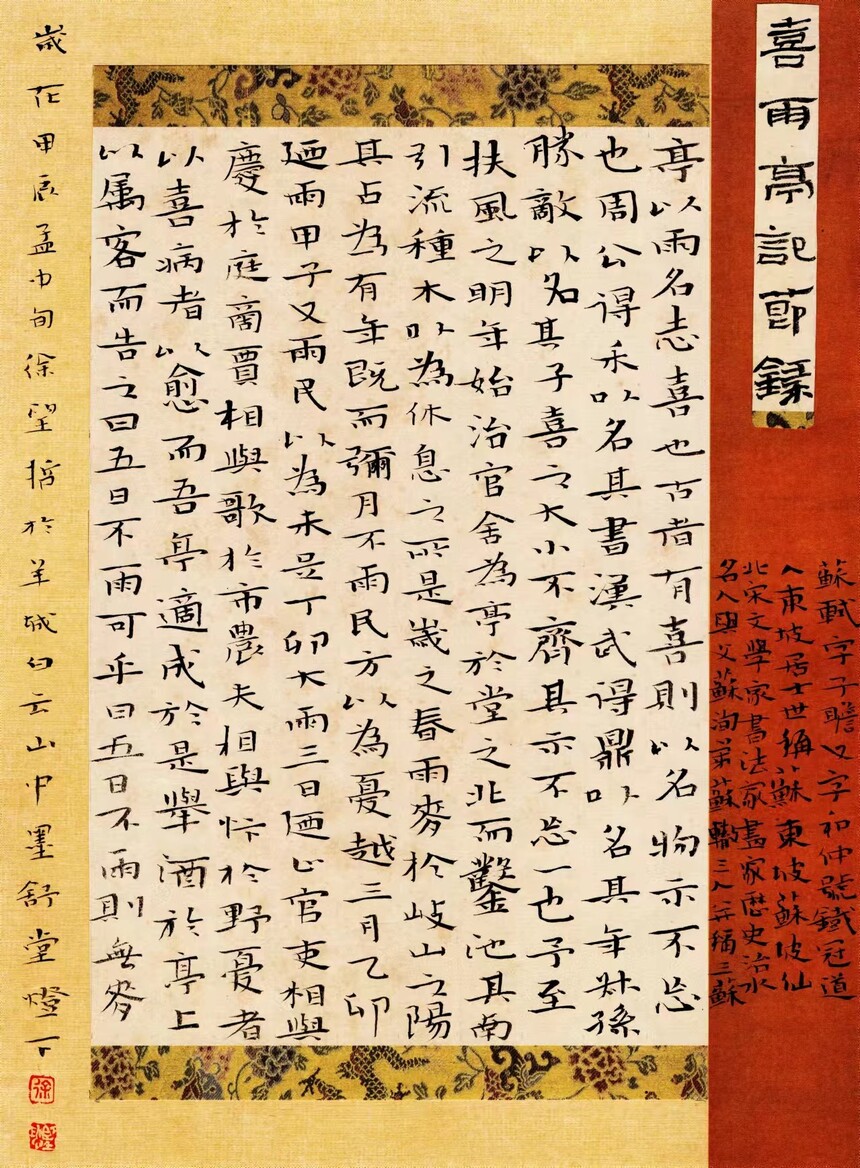 喜雨亭記節錄
蘇軾字子瞻又字和仲號鐵冠道
人東坡居士世稱蘇東坡蘇坡仙
北宋文學家書法家畫家歷史治水
名人與父蘇洵弟蘇轍三人并稱三蘇
亭以雨名志喜也古者有喜則以名物示不忘
也周公得禾以名其書漢武得鼎以名其年叔孫
勝敵以名其子喜之大小不齊其示不忘一也予至
扶風之明年始治官舍為亭於堂之北而鑿池其南
引流種木以為休息之所是歲之春雨麥於岐山之陽
其占為有年既而彌月不雨民方以為憂越三月乙卯
廼雨甲子又雨民以為未足丁卯大雨三日廼止官吏相與
慶於庭商賈相與歌於市農夫相與忭於野憂者
以喜病者以愈而吾亭適成於是舉酒於亭上
以屬客而告之曰五日不雨可乎曰五日不雨則無麥
歲在甲辰孟中旬徐望哲於羊城白云山中墨舒堂燈下
徐